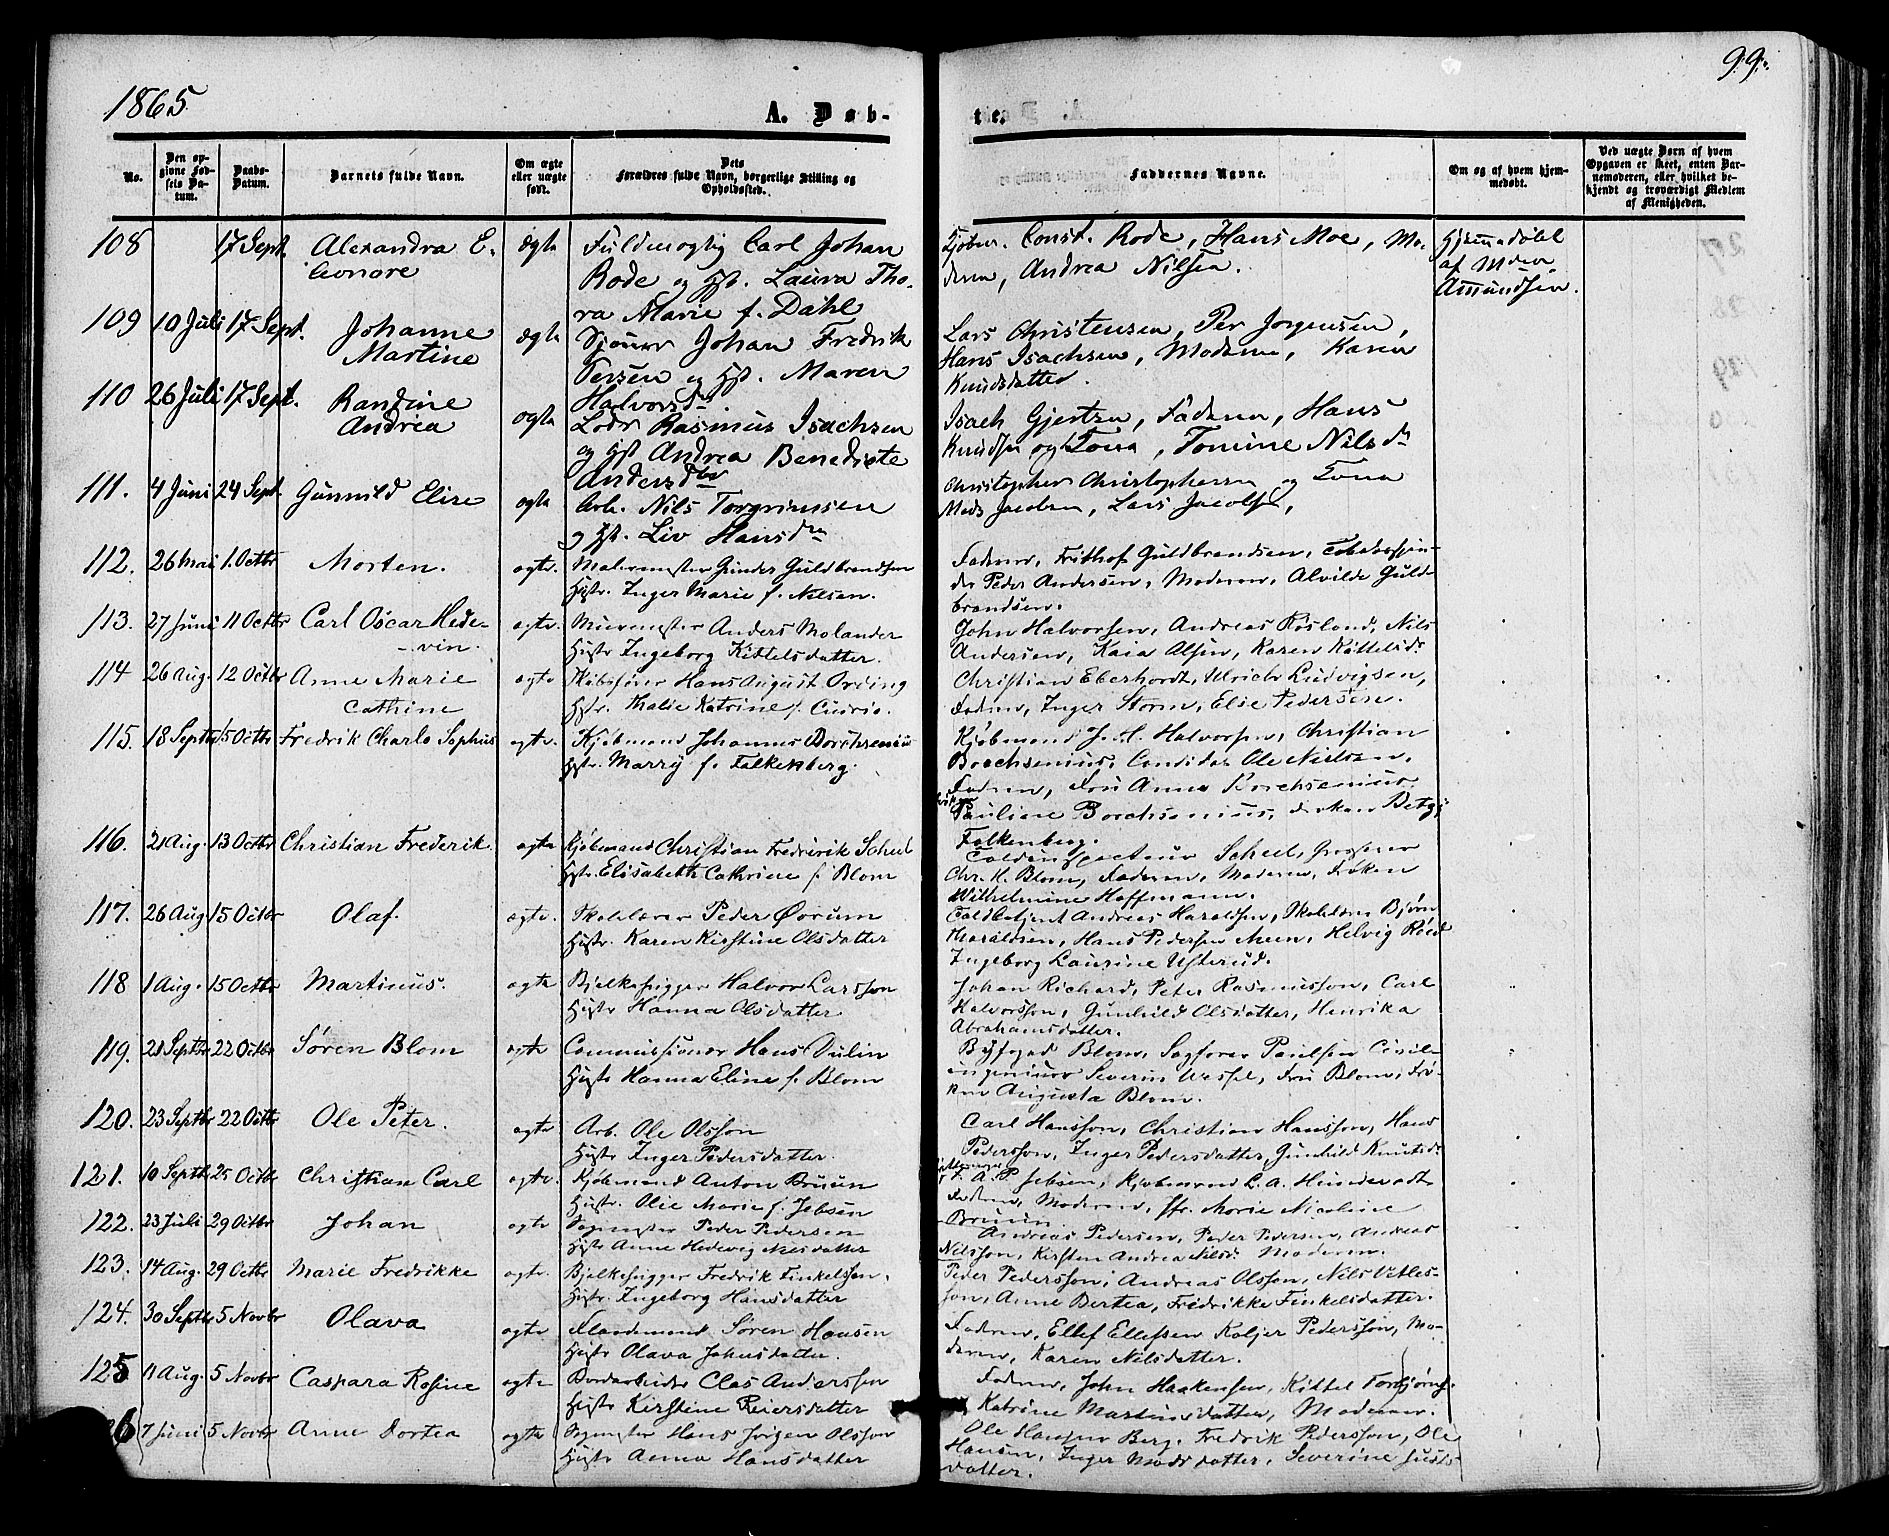 1865
99.
A. Døb-
te.
No.
Den op-
givne Fød-
sels Da-
tum.
Daabs-
Datum.
Barnets fulde Navn.
Om ægte
eller uægte
født.
Dets
Forældres fulde Navn, borgerlige Stilling og
Opholdssted.
Faddernes Navne.
Om og af hvem hjem-
medøbt.
Ved uægte Børn af hvem
Opgaven er skeet, enten Bar-
nemoderen, eller hvilket be-
kjendt og troværdigt Medlem
af Menigheden.
108 17 Sept. Alexandra E-
leonore
ægte
Fuldmægtig Carl Johan
Rode og Hst. Laura Tho-
ra Marie f. Dahl
Const. Rode, Hans Moe, Mo-
deren, Andrea Nilsen.
Hjemmedøbt
af
Amundsen.
109 10 Juli 17 Sept. Johanne
Martine
ægte
Johan Fredrik
og Hst. Maren
Halvorsd.
Lars Christensen, Per Jørgensen,
Hans Isachsen, Moderen, Karen
Knudsdatter.
110 26 Juli 17 Sept. Randine
Andrea
ægte
Lods Rasmus Isachsen
og Hst Andrea Benedicte
Andersdtr
Isach Gjertsen, Faderen, Hans
Knudsen og Kona, Tomine Nilsd.
111. 4 Juni 24 Sept. Gunnild Elise
ægte
Arb. Nils Torgrimsen
og Hst. Liv Hansd.
Christopher Christophersen og Kona
Mads Jacobsen, Lars Jacobsen,
112. 26 Mai 1. Octbr Morten.
ægte.
Malermester Gunder Guldbrandsen
Hustr. Inger Marie f. Nilsen.
Faderen, Frithof Guldbrandsen, Tobaksspin-
der Peder Andersen, Moderen, Alvilde Guld-
brandsen.
113. 27 Juni 11 Octbr Carl Oscar Hede-
-vin.
ægte.
Muremester Anders Molander
Hustr Ingeborg Kittelsdatter.
John Halvorsen, Andreas Røslund, Nils
Andersen, Kaia Olsen, Karen Kittelsd.
114 26 Aug. 12 Octbr Anne Marie
Cathine
ægte
Skibsfører Hans August Ording
Hstr. Thalie Katrine f.
Christian Eberhardt, Ulrich Ludvigsen,
Faderen, Inger Storm, Else Pedersen.
115. 18 Septbr 15 Octbr Fredrik Charlo Sophus
ægte.
Kjøbmand Johannes Borchsenius
Hstr. Marry f. Falkenberg.
Kjøbmand J. H. Halvorsen, Christian
Borchsenius, Candidat Ole Nielsen,
Faderen, Fru Anna Borchsenius
Pauline Borchsenius, Frøken Betzy
Falkenberg.
116. 21 Aug. 13 Octbr Christian Frederik.
ægte
Kjøbmand Christian Frederik Scheel
Hstr. Elisabeth Cathrine f. Blom
Toldinspecteur Scheel, Grosserer
Chr. H. Blom, Faderen, Moderen, Frøken
Wilhelmine Hoffmann.
117. 26 Aug 15 Octbr Olaf.
ægte.
Skolelærer Peder Ørum
Hustr. Karen Kirstine Olsdatter
Toldbetjent Andreas Haraldsen, Skolelærer Bjørn
Haraldsen, Hans Pedersen Meen, Helvig Røed
Ingeborg Laurine Usterud.
118 1 Aug. 15 Octbr Martinus.
ægte
Bjelkehugger Halvor Larssøn
Hustr Hanna Olsdatter
Johan Richard, Peter Rasmussøn, Carl
Halvorssøn, Gunhild Olsdatter, Henrika
Abrahamsdatter.
119. 21 Septbr 22 Octbr Søren Blom
ægte
Commissionær Hans Dulin
Hustr Hanna Eline f. Blom
Byfoged Blom, Sagfører Paulsen Civil-
ingeniør Severin Wessel, Fru Blom, Frø-
ken Augusta Blom.
120. 23 Septbr 22 Octbr Ole Peter.
ægte
Arb. Ole Olssøn
Hustr Inger Pedersdatter.
Carl Hanssøn, Christian Hanssøn, Hans
Pederssøn, Inger Pedersdatter, Gunhild Knutsd.
121. 10 Septbr 25 Octbr Christian Carl
ægte.
Kjøbmand Anton Bruun
Hustr. Olie Marie f. Jebsen
A. P. Jebsen, Kjøbmand L. A.
Faderen, Moderen, Marie Nicoline
Bruun
122. 23 Juli 29 Octbr Johan
ægte
Sagmester Peder Pedersen
Hustr Anne Hedevig Nilsdatter
Andreas Pedersen, Peder Pedersen, Andreas
Nilssøn, Kirsten Andrea Nilsd. Moderen.
123. 14 Aug. 29 Octbr Marie Fredrikke
ægte.
Bjelkehugger Fredrik Finkelssøn,
Hustr. Ingeborg Hansdatter
Peder Pederssøn, Andreas Olssøn, Nils Vetles-
søn, Anne Bertea, Fredrikke Finkelsdatter.
124. 30 Septbr 5 Novbr Olava
ægte
Søren Hansen
Hustr Olava Johnsdatter
Faderen, Ellef Ellefsen Pederssøn, Mo-
deren, Karen Nilsdatter.
125 11 Aug. 5 Novbr Caspara Rosine
ægte
Bordarbeider Clas Anderssøn
Hustr Kirstine Reiersdatter
Faderen, John Haakensen, Kittel Torbjørns.
Katrine Martinsdatter, Moderen.
6 7 Juni 5 Novbr Anne Dortea
ægte
Sagmester Hans Jørgen Olssøn
Hustr Anna Hansdatter
Ole Hansen Berg, Fredrik Pederssøn, Ole
Hansen, Inger Madsdatter, Severine Justs-
datter.